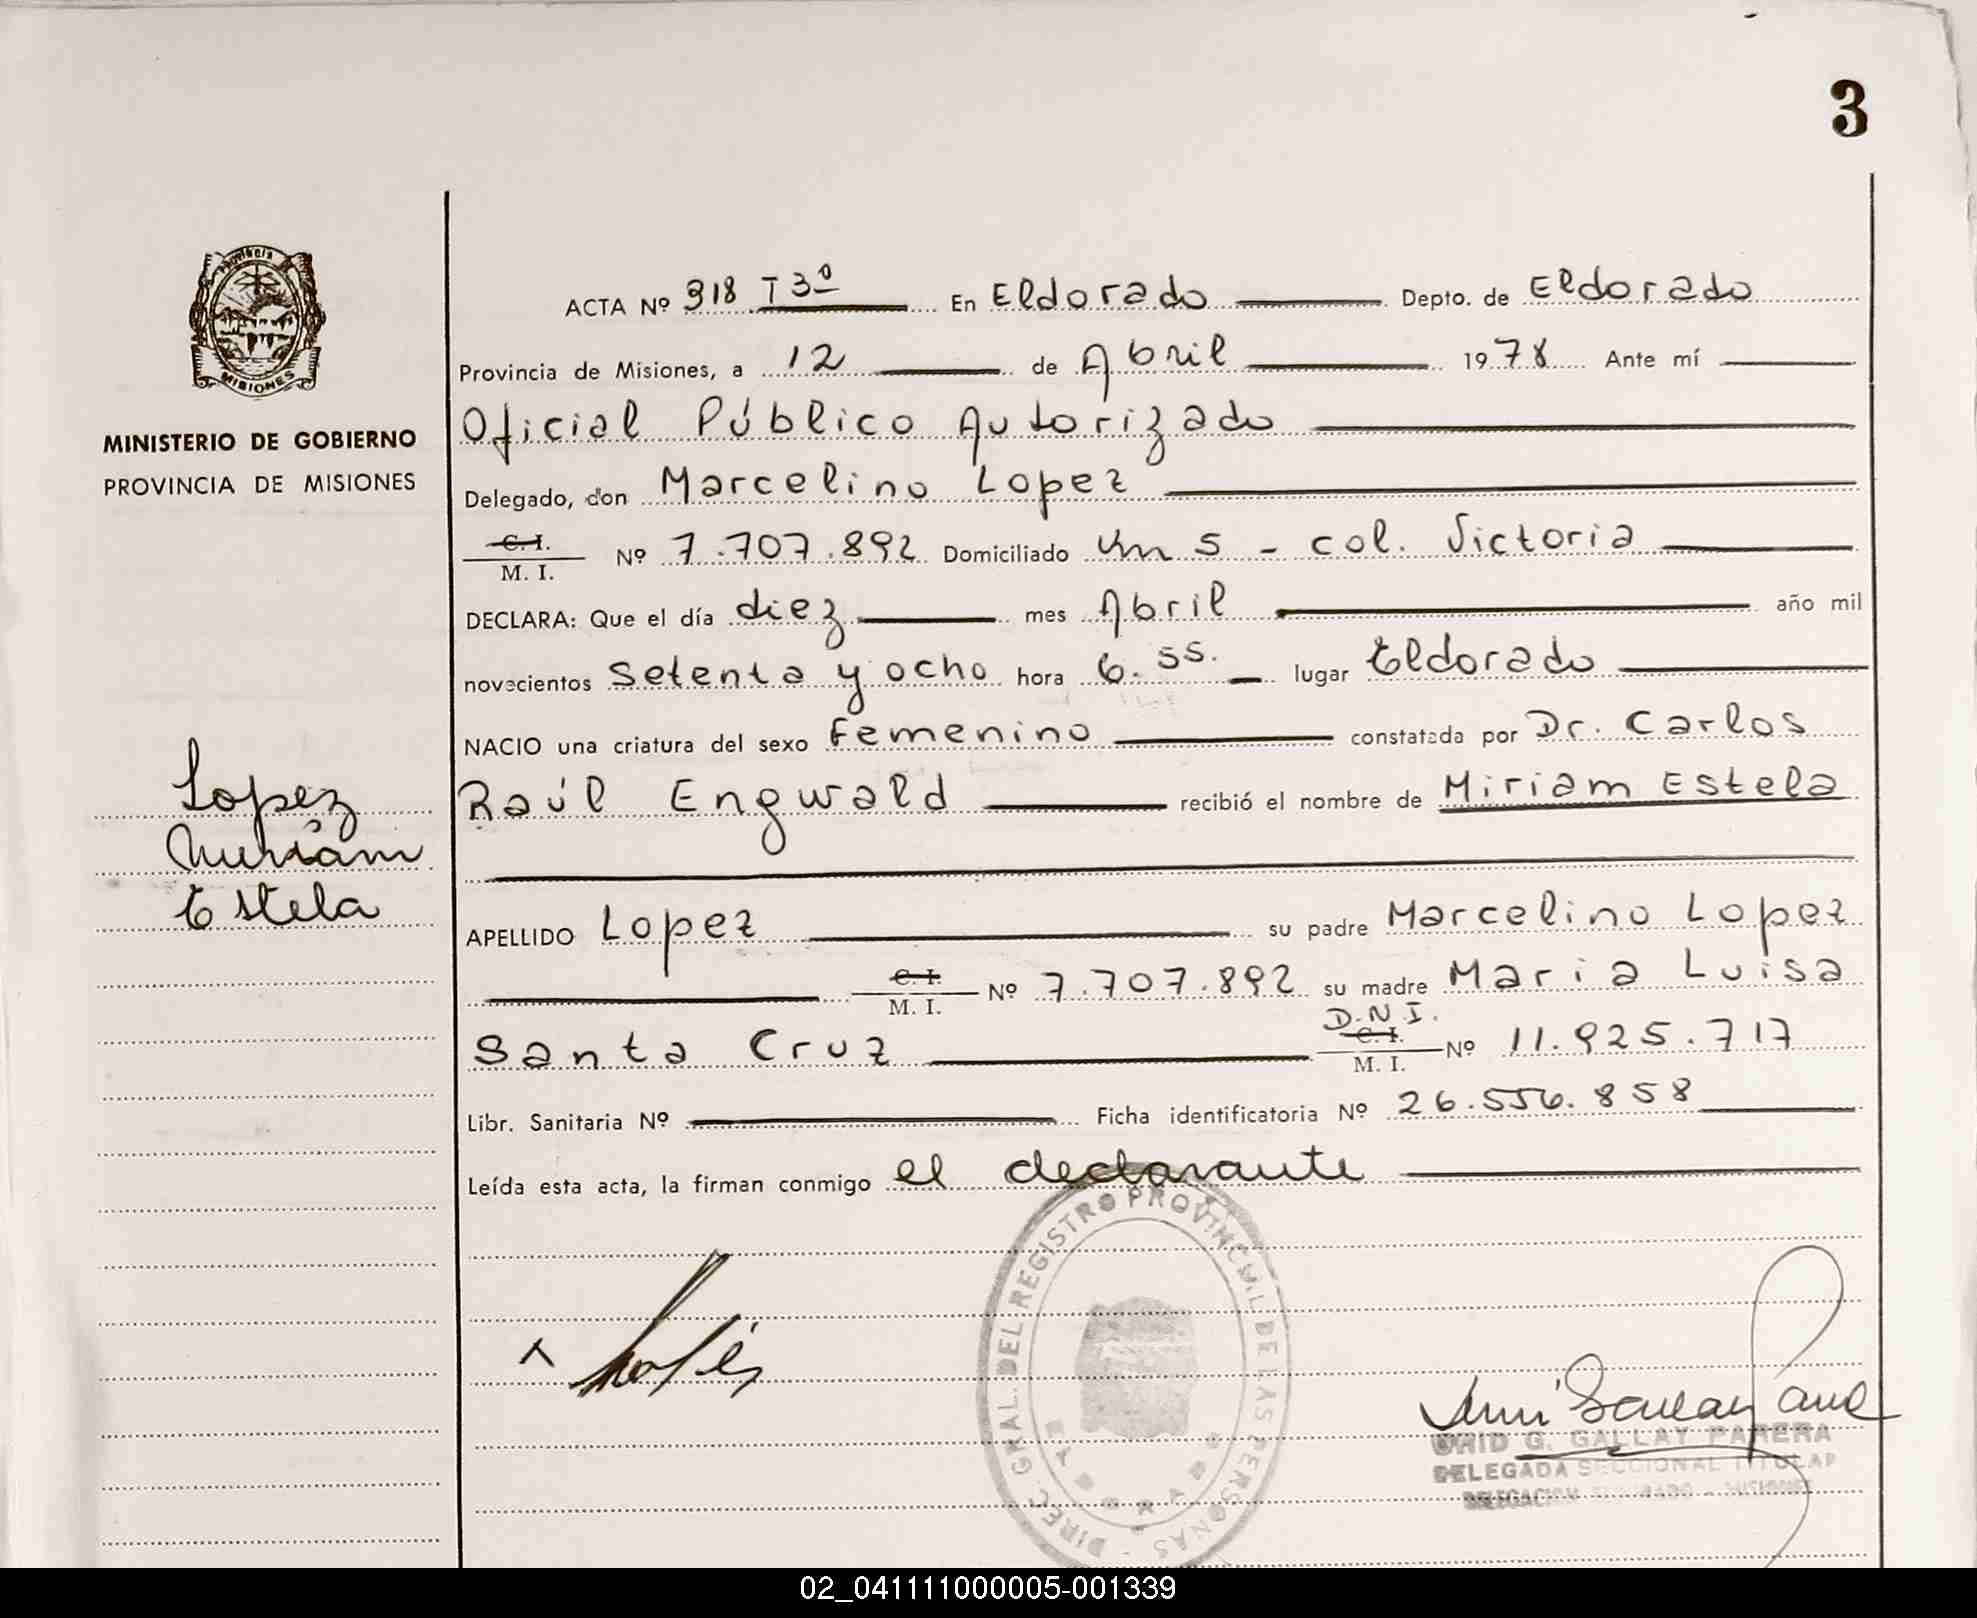 3
Provincia
MISIONES
MINISTERIO DE GOBIERNO
PROVINCIA DE MISIONES
Lopez
Miriam
Estela
ACTA Nº 318 T 3º En Eldorado Depto. de Eldorado
Provincia de Misiones, a 12 de Abril 1978 Ante mí
Oficial Público Autorizado
Delegado, don Marcelino Lopez
C. I.
M. I. Nº 7.707.892 Domiciliado Km 5 - col. Victoria
DECLARA: Que el día diez mes Abril año mil
novecientos setenta y ocho hora 6.55. lugar Eldorado
NACIO una criatura del sexo Femenino constatada por Dr. Carlos
Raúl Engwald recibió el nombre de Miriam Estela
APELLIDO Lopez su padre Marcelino Lopez
C. I.
M. I. Nº 7.707.892 su madre Maria Luisa
D.N.I.
Santa Cruz C. I. M. I. Nº 11.925.717
Libr. Sanitaria Nº Ficha identificatoria Nº 26.556.858
Leída esta acta, la firman conmigo el declarante
DIREC. GRAL. DEL REGISTRO PROVINCIAL DE LAS PERSONAS
Lopez
G. GALLAY PARERA
DELEGADA SECCIONAL TITULAR
DELEGACION ELDORADO - MISIONES
02_041111000005-001339